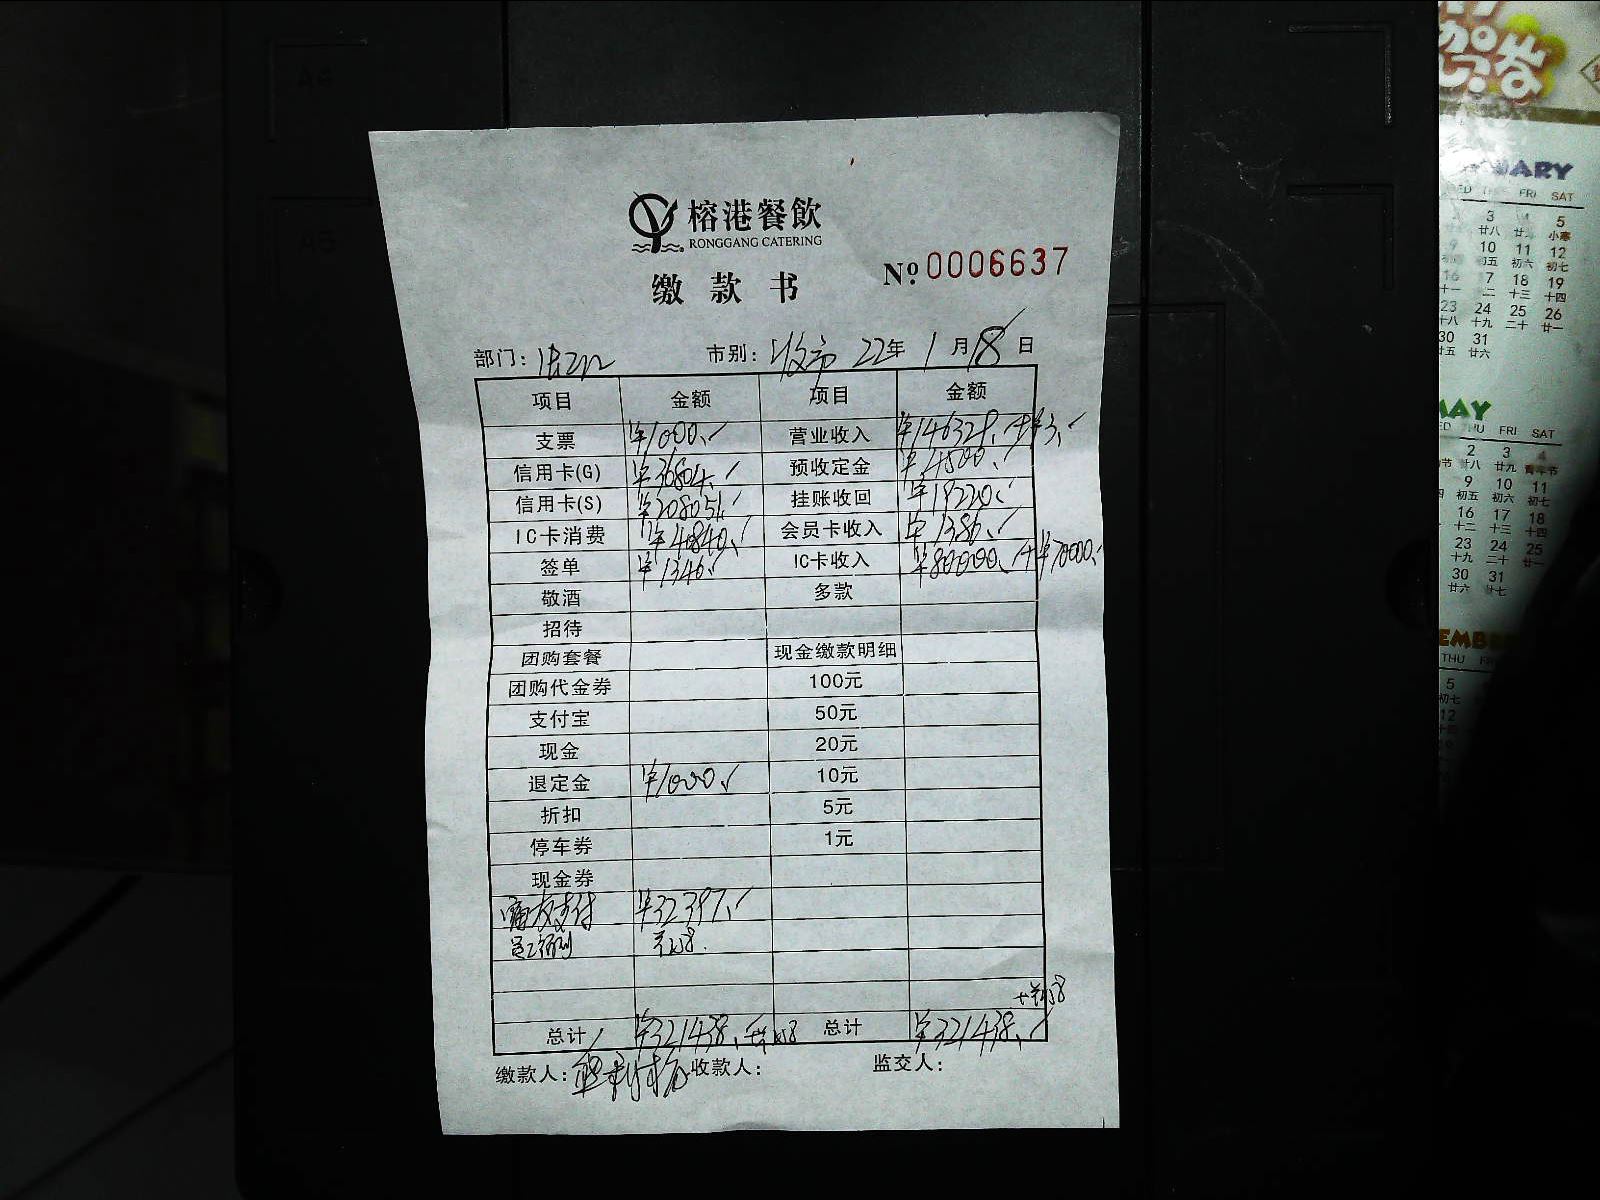 榕港餐飲
RONGGANG CATERING
缴款书
No. 0006637
部门: 市别: 收市 22年 1月 18日
项目 金额 项目 金额
支票 ¥1000. 营业收入 ¥146329.
信用卡(G) ¥36804. 预收定金 ¥4500.
信用卡(S) ¥208051. 挂账收回 ¥19220.
IC卡消费 ¥40840. 会员卡收入 ¥1386.
签单 ¥1346. IC卡收入 ¥80000.+¥70000.
敬酒 多款
招待
团购套餐 现金缴款明细
团购代金券 100元
支付宝 50元
现金 20元
退定金 ¥1000. 10元
折扣 5元
停车券 1元
现金券
支付 ¥32397.
总计 ¥321438. 总计 ¥321438.
缴款人: 收款人: 监交人:
WED THU FRI SAT
3 4 5
廿八 小寒
9 10 11 12
初五 初六 初七
16 17 18 19
十一 十二 十三 十四
23 24 25 26
十八 十九 二十 廿一
30 31
廿五 廿六
MAY
WED THU FRI SAT
2 3 4
廿八 廿九 青年节
9 10 11
初五 初六 初七
16 17 18
十二 十三 十四
23 24 25
十九 二十 廿一
30 31
廿六 廿七
THU
5
12